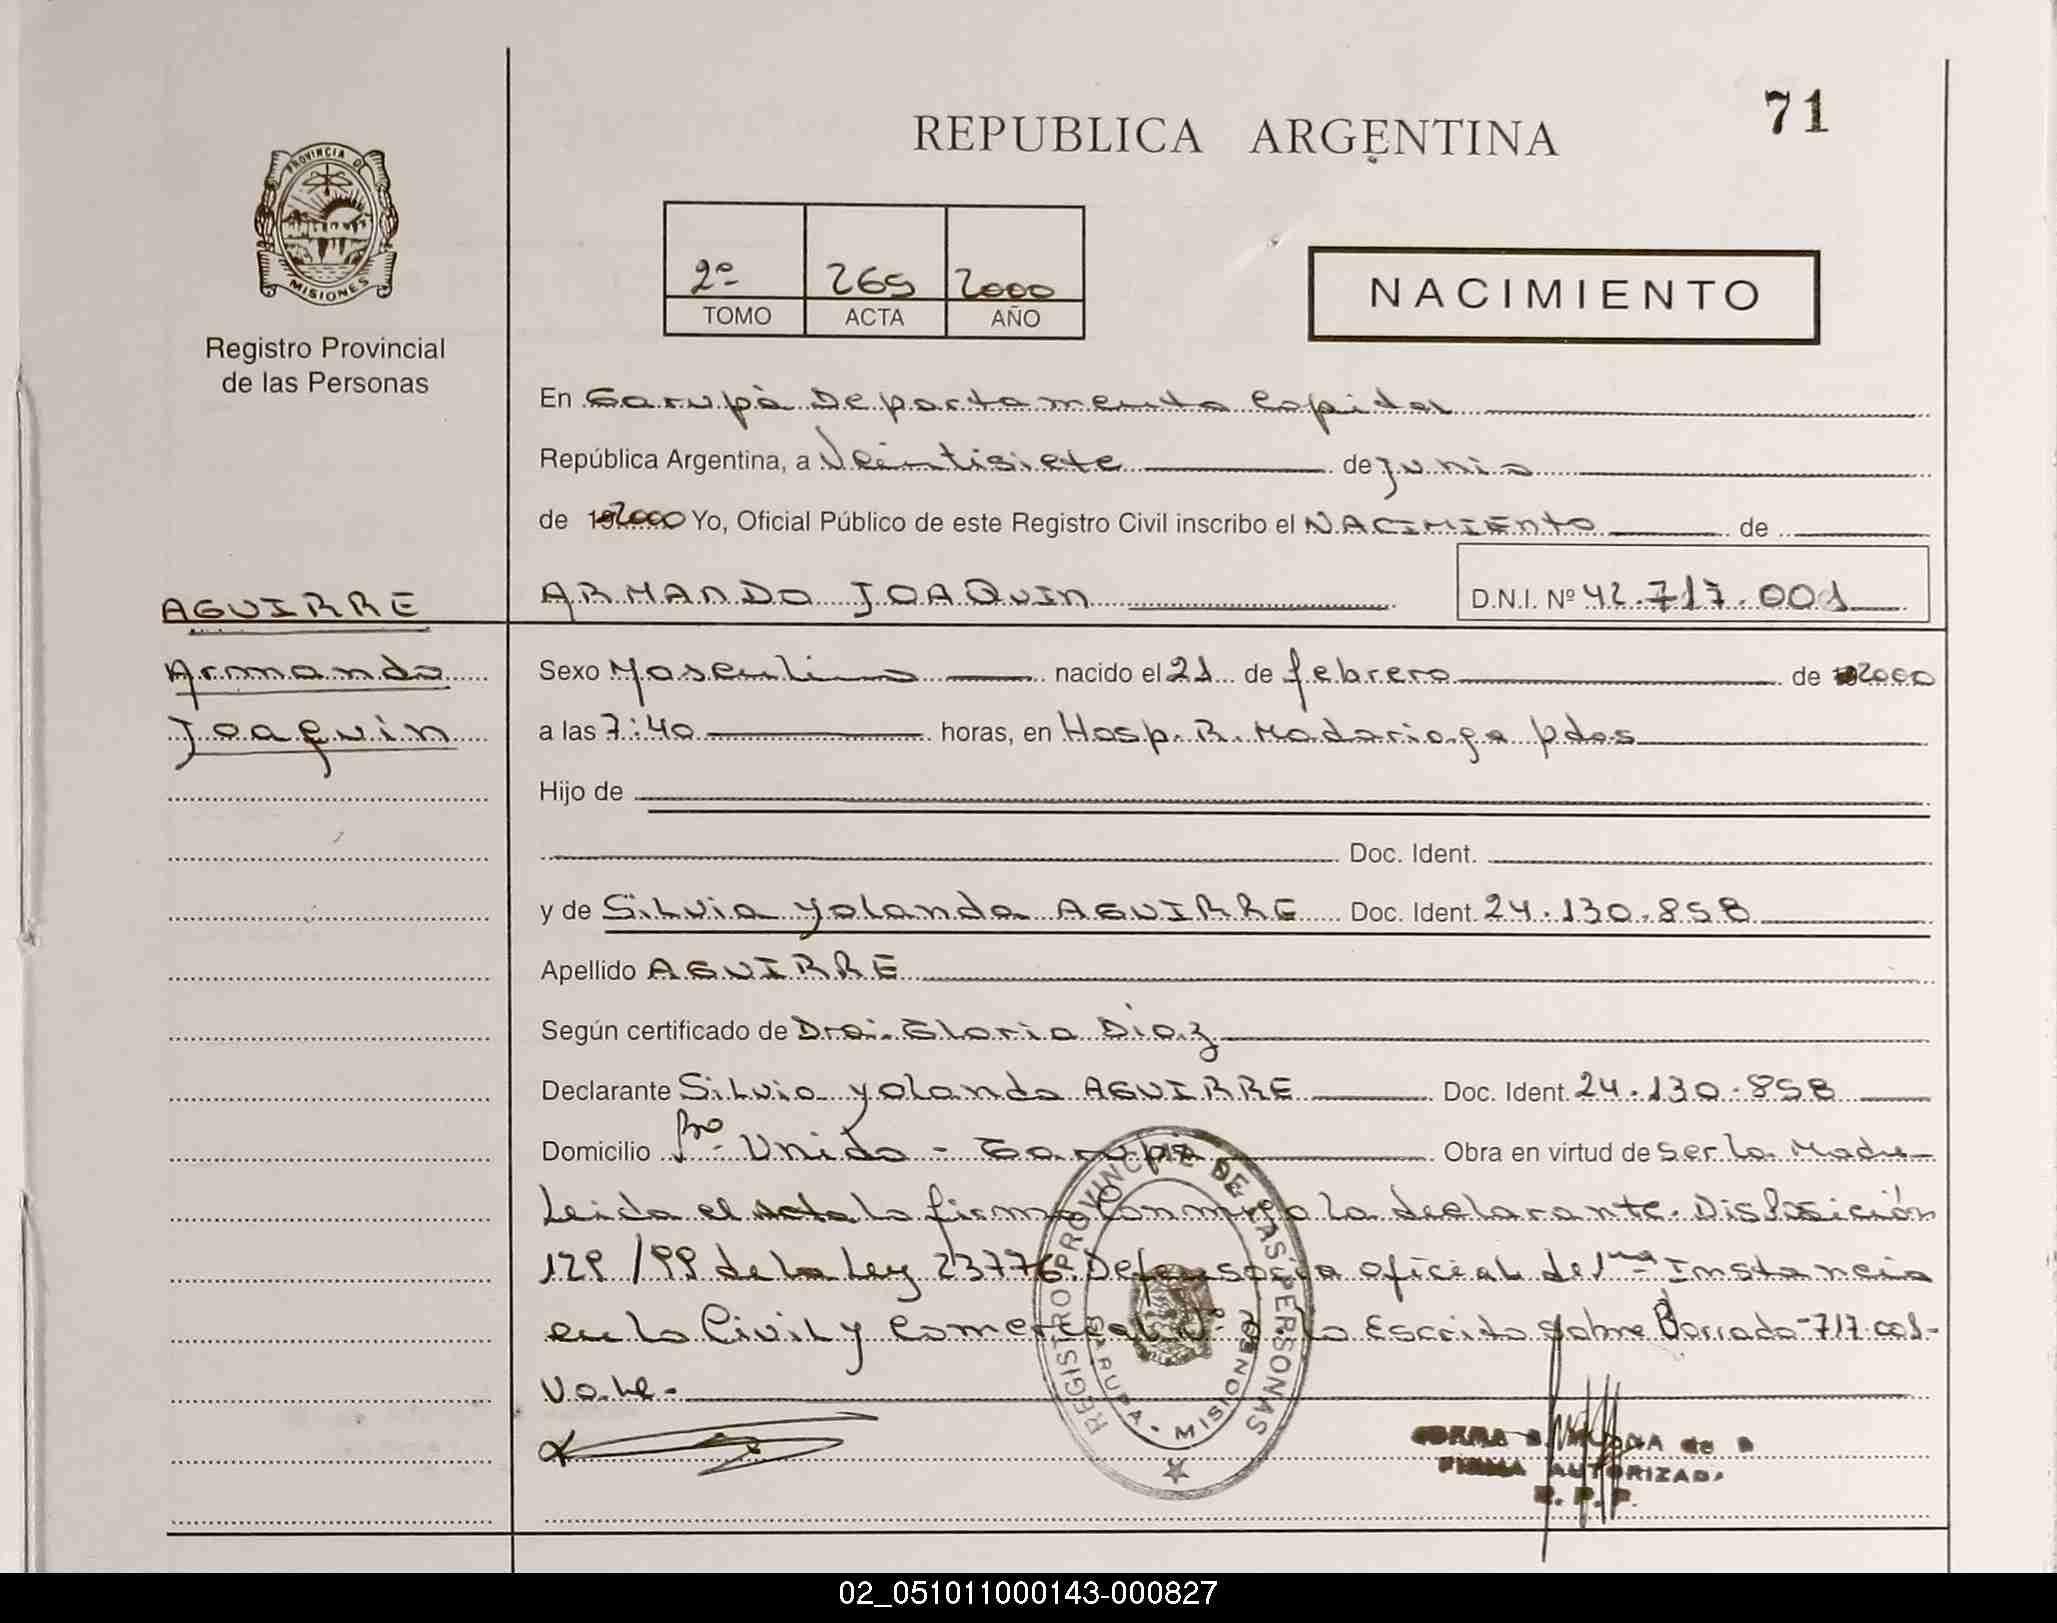 71
REPUBLICA ARGENTINA
PROVINCIA DE
MISIONES
Registro Provincial
de las Personas
2º 265 2000
TOMO ACTA AÑO
NACIMIENTO
En Garupà Departamento Capital
República Argentina, a Veintisiete de junio
de 2000 Yo, Oficial Público de este Registro Civil inscribo el NACIMIENTO de
AGUIRRE
ARMANDO JOAQUIN D.N.I. Nº 42.717.001
Armando
Joaquin
Sexo Masculino nacido el 21 de febrero de 2000
a las 7:40 horas, en Hosp. R. Madariaga pdas
Hijo de
Doc. Ident.
y de Silvia Yolanda AGUIRRE Doc. Ident. 24.130.858
Apellido AGUIRRE
Según certificado de Dra. Gloria Diaz
Declarante Silvia Yolanda AGUIRRE Doc. Ident. 24.130.858
Domicilio Bro. Unido - Garupà Obra en virtud de ser la Madre
Leida el Acta la firma Conmigo la declarante. Disposición
129/99 de la Ley 23776. Defensoria oficial de 1ra Instancia
en lo Civil y Comercial Nº 2. Lo Escrito sobre Borrado -717.001-
Vale.-
REGISTRO PROVINCIAL DE LAS PERSONAS
GARUPA - MISIONES
FIRMA AUTORIZADA
R. P. P.
02_051011000143-000827